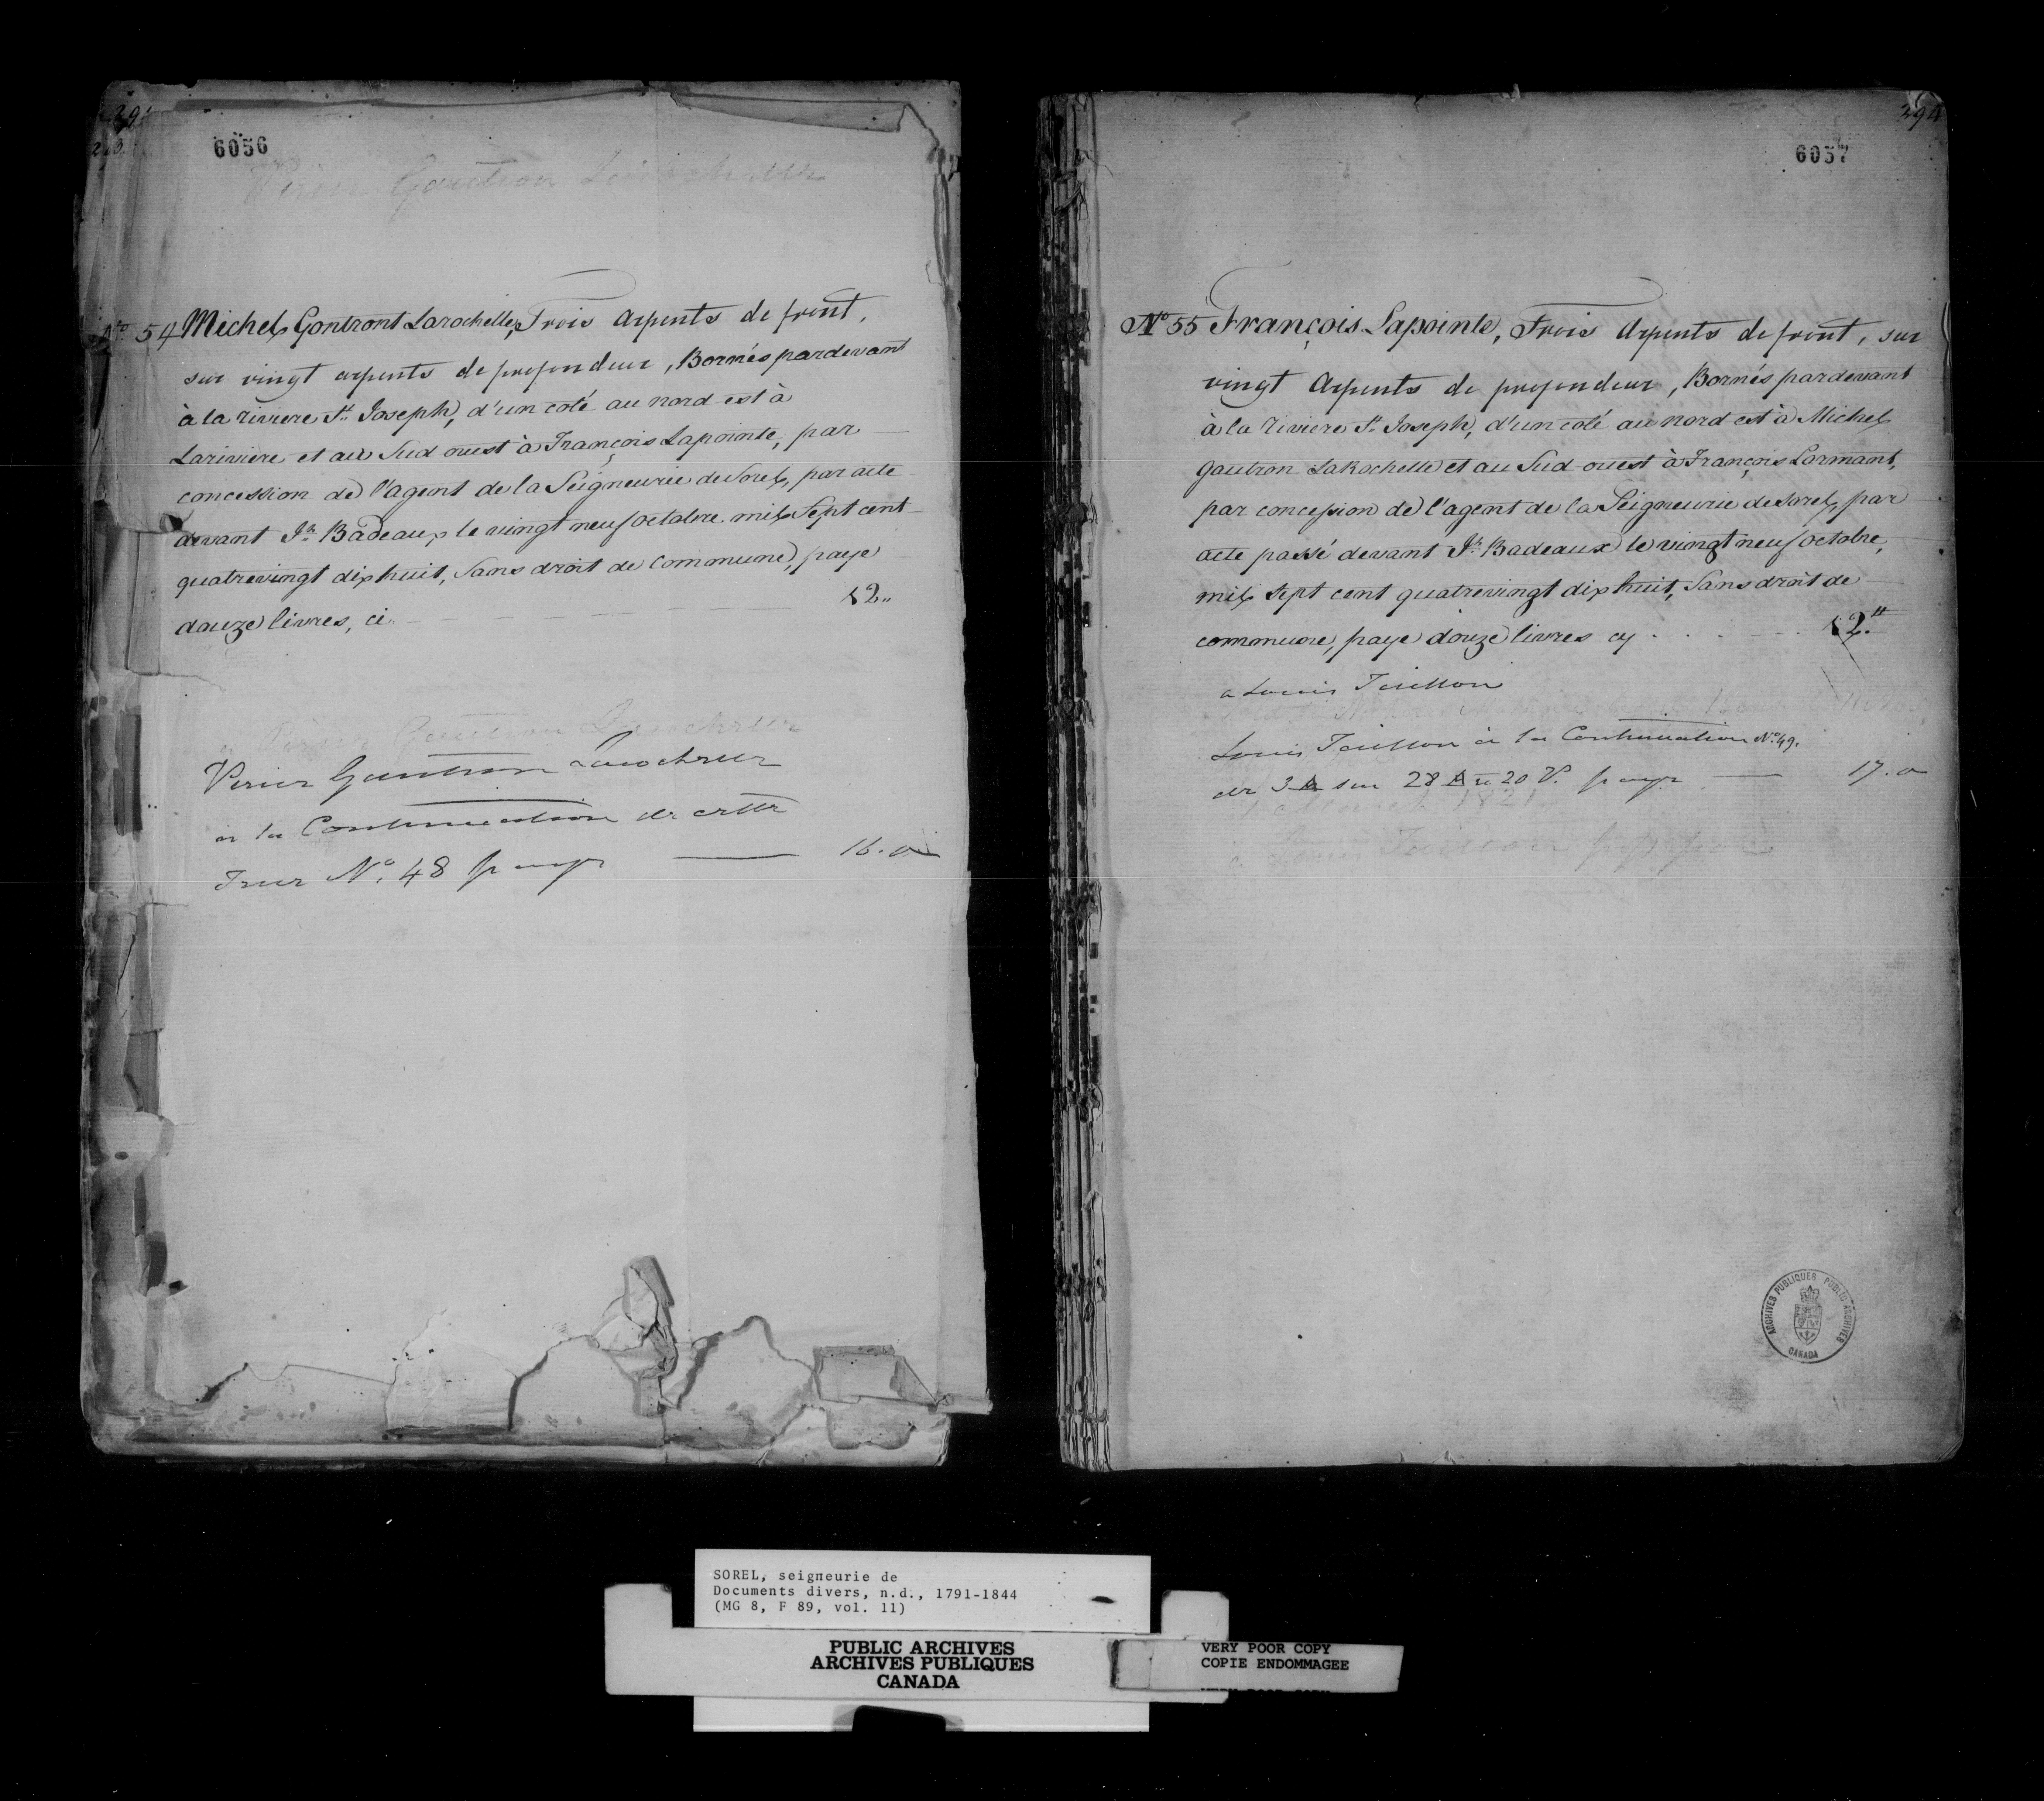 6056
No 54 Michel Gontront Larochelle, Trois Arpents de front,
sur vingt arpents de profondeur, Bornés pardevant
à la riviere St. Joseph, d'un coté au nord-est à
Lariviere et au Sud ouest à François Lapointe, par
concession de l'agent de la Seigneurie de Sorel, par acte
devant Jh. Badeaux le vingt neuf octobre mil Sept cent
quatrevingt dix huit, Sans droit de Commune, paye
douze livres, ci 12
Gautron
à la Continuation de cette
Terre No. 48 paye 16.0
294
6057
No 55 François Lapointe, Trois Arpents de front, sur
vingt Arpents de profondeur, Bornés pardevant
à la riviere St. Joseph, d'un coté au nord est à Michel
Gautron LaRochelle et au Sud-ouest à François Lormant,
par concession de l'agent de la Seigneurie de Sorel, par
acte passé devant Jh. Badeaux le vingt neuf octobre,
mil sept cent quatrevingt dix huit, Sans droit de
commune, paye douze livres cy 12.tt
a Louis
Louis à la Continuation No. 49.
de 3 A sur 28 A a 20 P. paye 17.0
ARCHIVES PUBLIQUES PUBLIC ARCHIVES
CANADA
SOREL, seigneurie de
Documents divers, n.d., 1791-1844
(MG 8, F 89, vol. 11)
PUBLIC ARCHIVES
ARCHIVES PUBLIQUES
CANADA
VERY POOR COPY
COPIE ENDOMMAGEE